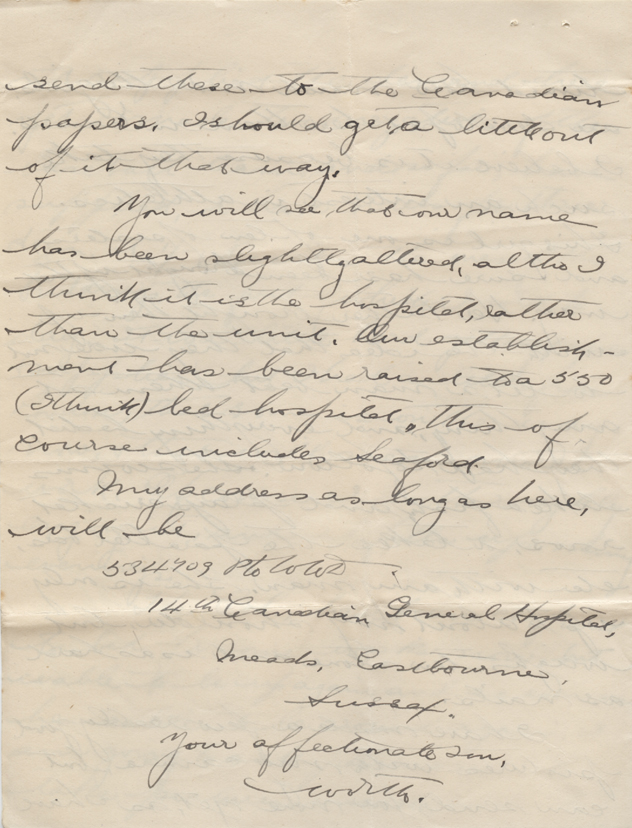 send these to the Canadian
papers. I should get a little out
of it that way.
You will see that our name
has been slightly altered, altho I
think it is the hospital, rather
than the unit. Our establish-
ment has been raised to a 550
(I think) bed hospital, this of
course includes Seaford.
My address as long as here,
will be
534909 Pte
14th Canadian General Hospital,
Meads, Eastbourne,
Sussex.
Your affectionate son,
Worth.